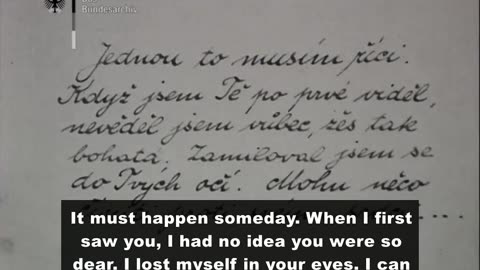 Das
Bundesarchiv
Jednou to musím říci.
Když jsem Tě po prvé viděl,
nevěděl jsem vůbec, žěs tak
bohata. Zamiloval jsem se
do Tvých očí. Mohu něco
It must happen someday. When I first
saw you, I had no idea you were so
dear. I lost myself in your eyes. I can